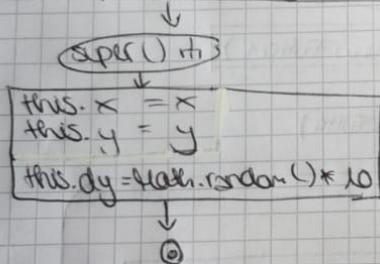 super()
this.x = x
this.y = y
this.dy = Math.random() * 10